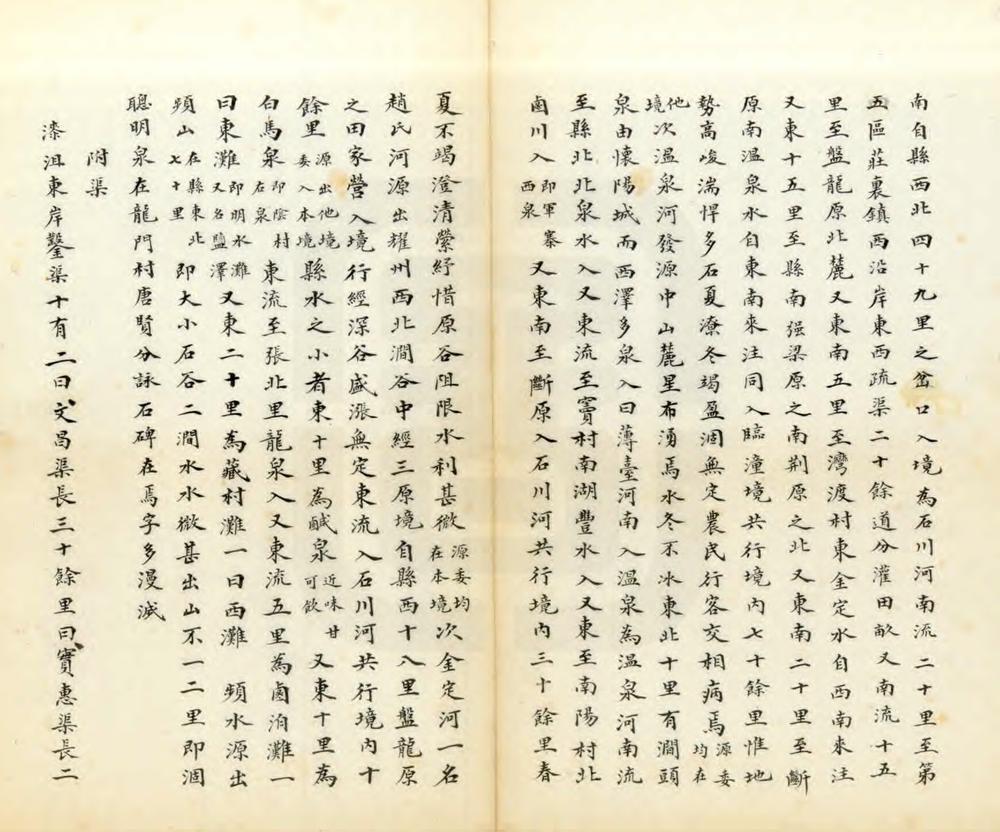 南自縣西北四十九里之岔口入境為石川河南流二十里至第
五區莊裏鎮西沿岸東西疏渠二十餘道分灌田畝又南流十五
里至盤龍原北麓又東南五里至灣渡村東金定水自西南來注
又東十五里至縣南强梁原之南荆原之北又東南二十里至斷
原南温泉水自東南來注同入臨潼境共行境內七十餘里惟地
勢高峻湍悍多石夏潦冬竭盈涸無定農民行客交相病焉源委均在
他境次温泉河發源中山麓星布湧焉水冬不冰東北十里有澗頭
泉由懷陽城而西澤多泉入曰薄臺河南入温泉為温泉河南流
至縣北北泉水入又東流至竇村南湖豐水入又東至南陽村北
鹵川入即軍寨西泉又東南至斷原入石川河共行境內三十餘里春
夏不竭澄清縈紆惜原谷阻限水利甚微源委均在本境次金定河一名
趙氏河源出耀州西北澗谷中經三原境自縣西十八里盤龍原
之田家營入境行經深谷盛漲無定東流入石川河共行境內十
餘里源出他境委入本境縣水之小者東十里為鹹泉近味甘可飲又東十里為
白馬泉即陰村在泉東流至張北里龍泉入又東流五里為鹵泊灘一
曰東灘即明水灘又名鹽澤又東二十里為藏村灘一曰西灘 頻水源出
頻山在縣東北七十里即大小石谷二澗水微甚出山不一二里即涸
聰明泉在龍門村唐賢分詠石碑在焉字多漫滅
附渠
漆沮東岸鑿渠十有二曰文昌渠長三十餘里曰實惠渠長二